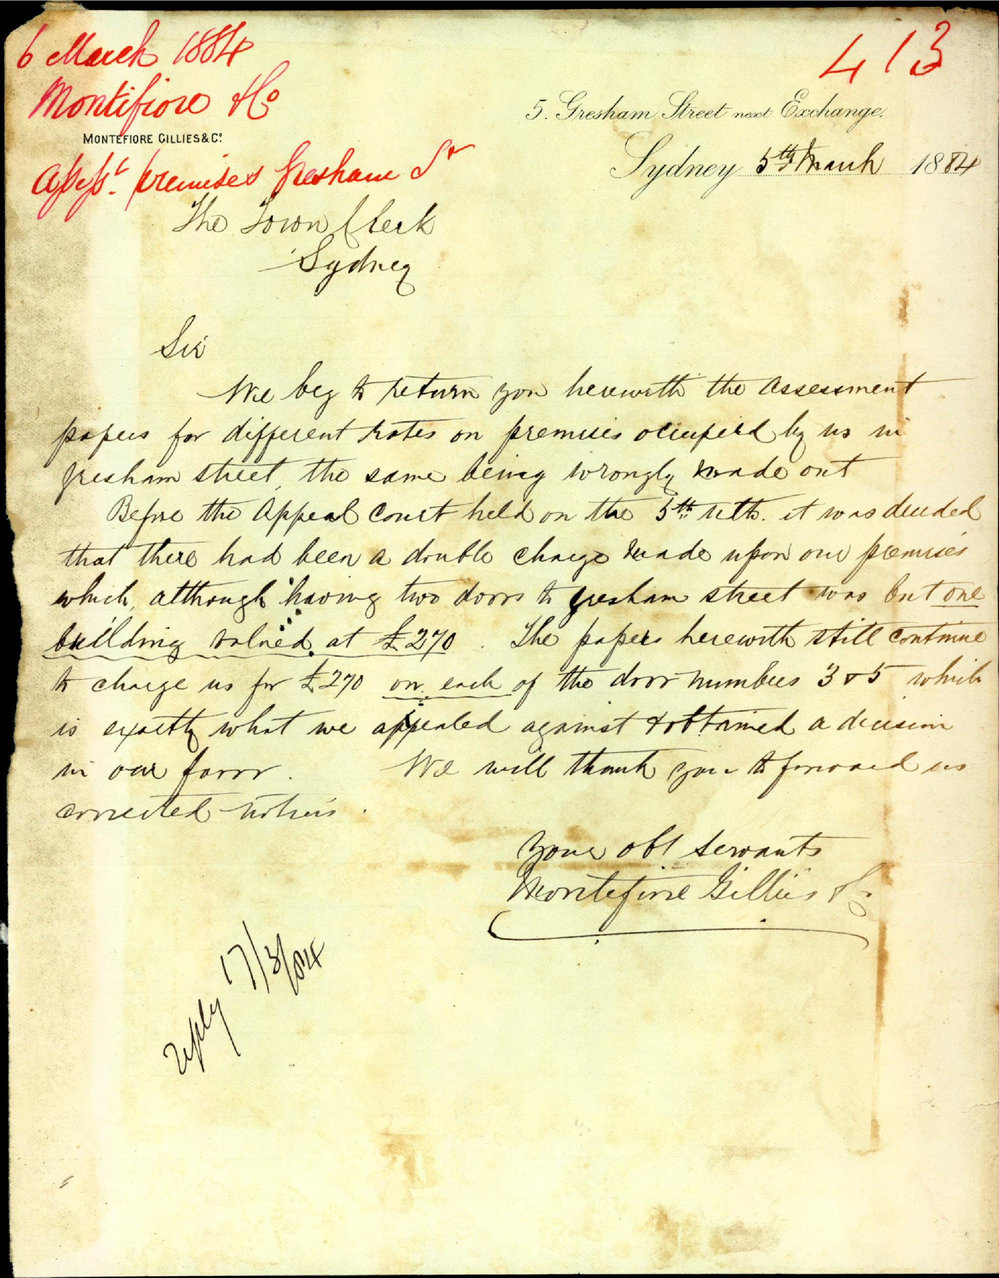 6 March 1884
413
Montifiore & Co
5. Gresham Street next Exchange.
MONTEFIORE GILLIES & Co.
Sydney 5th March 1884
Assest. premises Gresham St
The Town Clerk
Sydney
Sir
We beg to return you herewith the assessment
papers for different rates on premises occupied by us in
Gresham street, the same being wrongly made out
Before the Appeal Court held on the 5th ulto. it was decided
that there had been a double charge made upon our premises
which, although having two doors to Gresham street was but one
building valued at £270. The papers herewith still continue
to charge us for £270 on each of the door numbers 3 & 5 which
is exactly what we appealed against & obtained a decision
in our favor. We will thank you to forward us
corrected notices.
Your obt servants
Montefiore Gillies & Co
reply 17/3/84